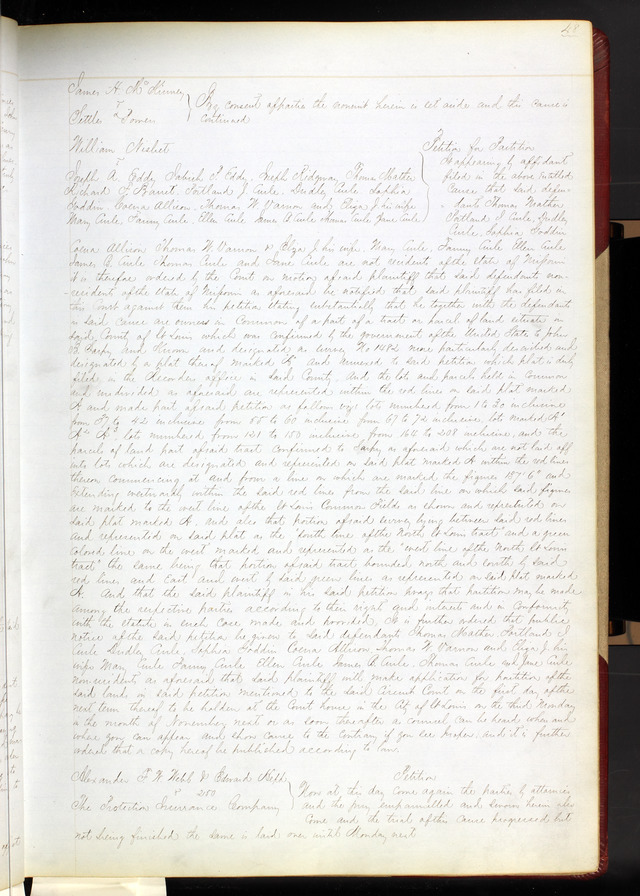 48
James H McKinney
vs
Settle & Bowen
By consent of parties the nonsuit herein is set aside and this cause is
continued
William Nesbit
vs
Joseph A Eddy Zabich T Eddy, Joseph Ridgway Thomas Mather
Richard F Barret, Portland J Curle, Dudley Curle, Sophia
Goddin Coena Allison, Thomas W Varnon and Eliza J his wife
Mary Curle, Fanny Curle, Ellen Curle James A Curle Thomas Curle Jane Curle
Petition for Partition
It appearing by affidavit
filed in the above entitled
cause that said defen-
-dants Thomas Mather
Portland J Curle, Dudley
Curle, Sophia Goddin
Coena Allison Thomas W. Varnon & Eliza J his wife Mary Curle, Fanny Curle Ellen Curle
James A Curle Thomas Curle and Jane Curle are not residents of the State of Missouri
it is therefore ordered by the Court on motion of said plaintiff that said defendants non-
-residents of the State of Missouri as aforesaid be notified that said plaintiff has filed in
this Court against them his petition stating substantially that he together with the defendants
in said cause are owners in Common of a part of a tract or parcel of land situate in
said County of St Louis which was confirmed by the government of the United States to John
B Sarpy and known and designated as survey No 1484 more particularly described and
designated by a plat thereof marked A and annexed to said petition which plat is duly
filed in the Recorders office in said County, and the lots and parcels held in Common
and undivided as aforesaid are represented within the red lines on said plat marked
A and made part of said petition as follows viz: lots numbered from 1 to 30 inclusive
from 37 to 42 inclusive from 55 to 60 inclusive from 67 to 72 inclusive, lots marked
lots numbered from 121 to 150 inclusive, from 164 to 208 inclusive, and the
parcels of land part of said tract confirmed to Sarpy as aforesaid which are not laid off
into lots which are designated and represented on said plat marked A within the red lines
thereon commencing at and from a line on which are marked the figures 187' 6" and
extending westwardly within the said red lines from the said line on which said figures
are marked to the west line of the St Louis Common Fields as shown and represented on
said plat marked A. and also that portion of said survey lying between said red lines
and represented on said plat as the fourth line of the North St Louis tract and a green
colored line on the west marked and represented as the "west line of the North St Louis
tract" the same being that portion of said tract bounded north and south by said
red lines and East and west by said green lines as represented on said plat marked
A. And that the said plaintiff in his said petition prays that partition may be made
among the respective parties according to their rights and interests and in conformity
with the statute in such case made and provided. It is further ordered that public
notice of the said petition be given to said defendants Thomas Mather, Portland J
Curle Dudley Curle, Sophia Goddin Coena Allison Thomas W. Varnon and Eliza J his
wife Mary Curle Fanny Curle Ellen Curle James A Curle, Thomas Curle and Jane Curle
nonresidents as aforesaid that said plaintiff will make application for partition of the
said lands in said petition mentioned to the said Circuit Court on the first day of the
next term thereof to be holden at the Court house in the City of St Louis on the third Monday
in the month of November next or as soon thereafter as counsel can be heard when and
where you can appear and show cause to the contrary if you see proper: and it is further
ordered that a copy hereof be published according to law.
Alexander F W Webb & Edward Kehl
vs 250
The Protection Insurance Company
Petition
Now at this day come again the parties by attornies
and the jury empannelled and sworn herein also
come and the trial of this cause progressed but
not being finished the same is laid over until Monday next